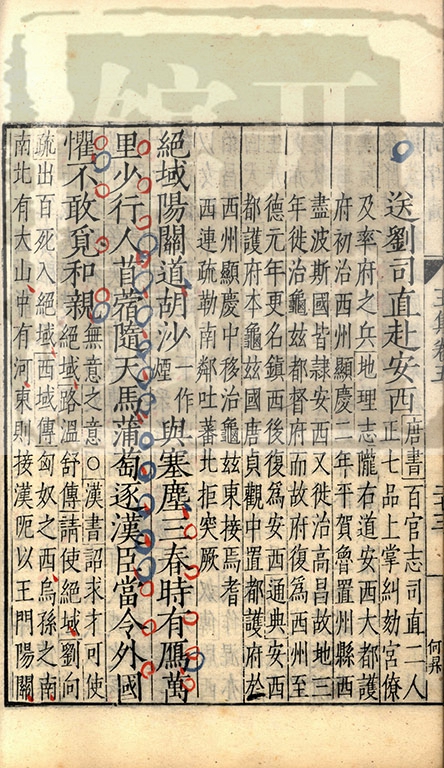 送劉司直赴安西 唐書百官志司直二人
正七品上掌糾劾宮僚
及率府之兵地理志隴右道安西大都護
府初治西州顯慶二年平賀魯置州縣西
盡波斯國皆隷安西又徙治高昌故地三
年徙治龜兹都督府而故府復為西州至
德元年更名鎮西後復為安西通典安西
都護府本龜兹國唐貞觀中置都護府於
西州顯慶中移治龜兹東接焉耆
西連疏勒南鄰吐蕃北拒突厥
絕域陽關道胡沙一作煙與塞塵三春時有鴈萬
里少行人苜蓿隨天馬蒲萄逐漢臣當令外國
懼不敢覓和親 無意之意○漢書詔求才可使
絕域路溫舒傳請使絕域劉向
疏出百死入絕域西域傳匈奴之西烏孫之南
南北有大山中有河東則接漢阨以玉門陽關
何昇